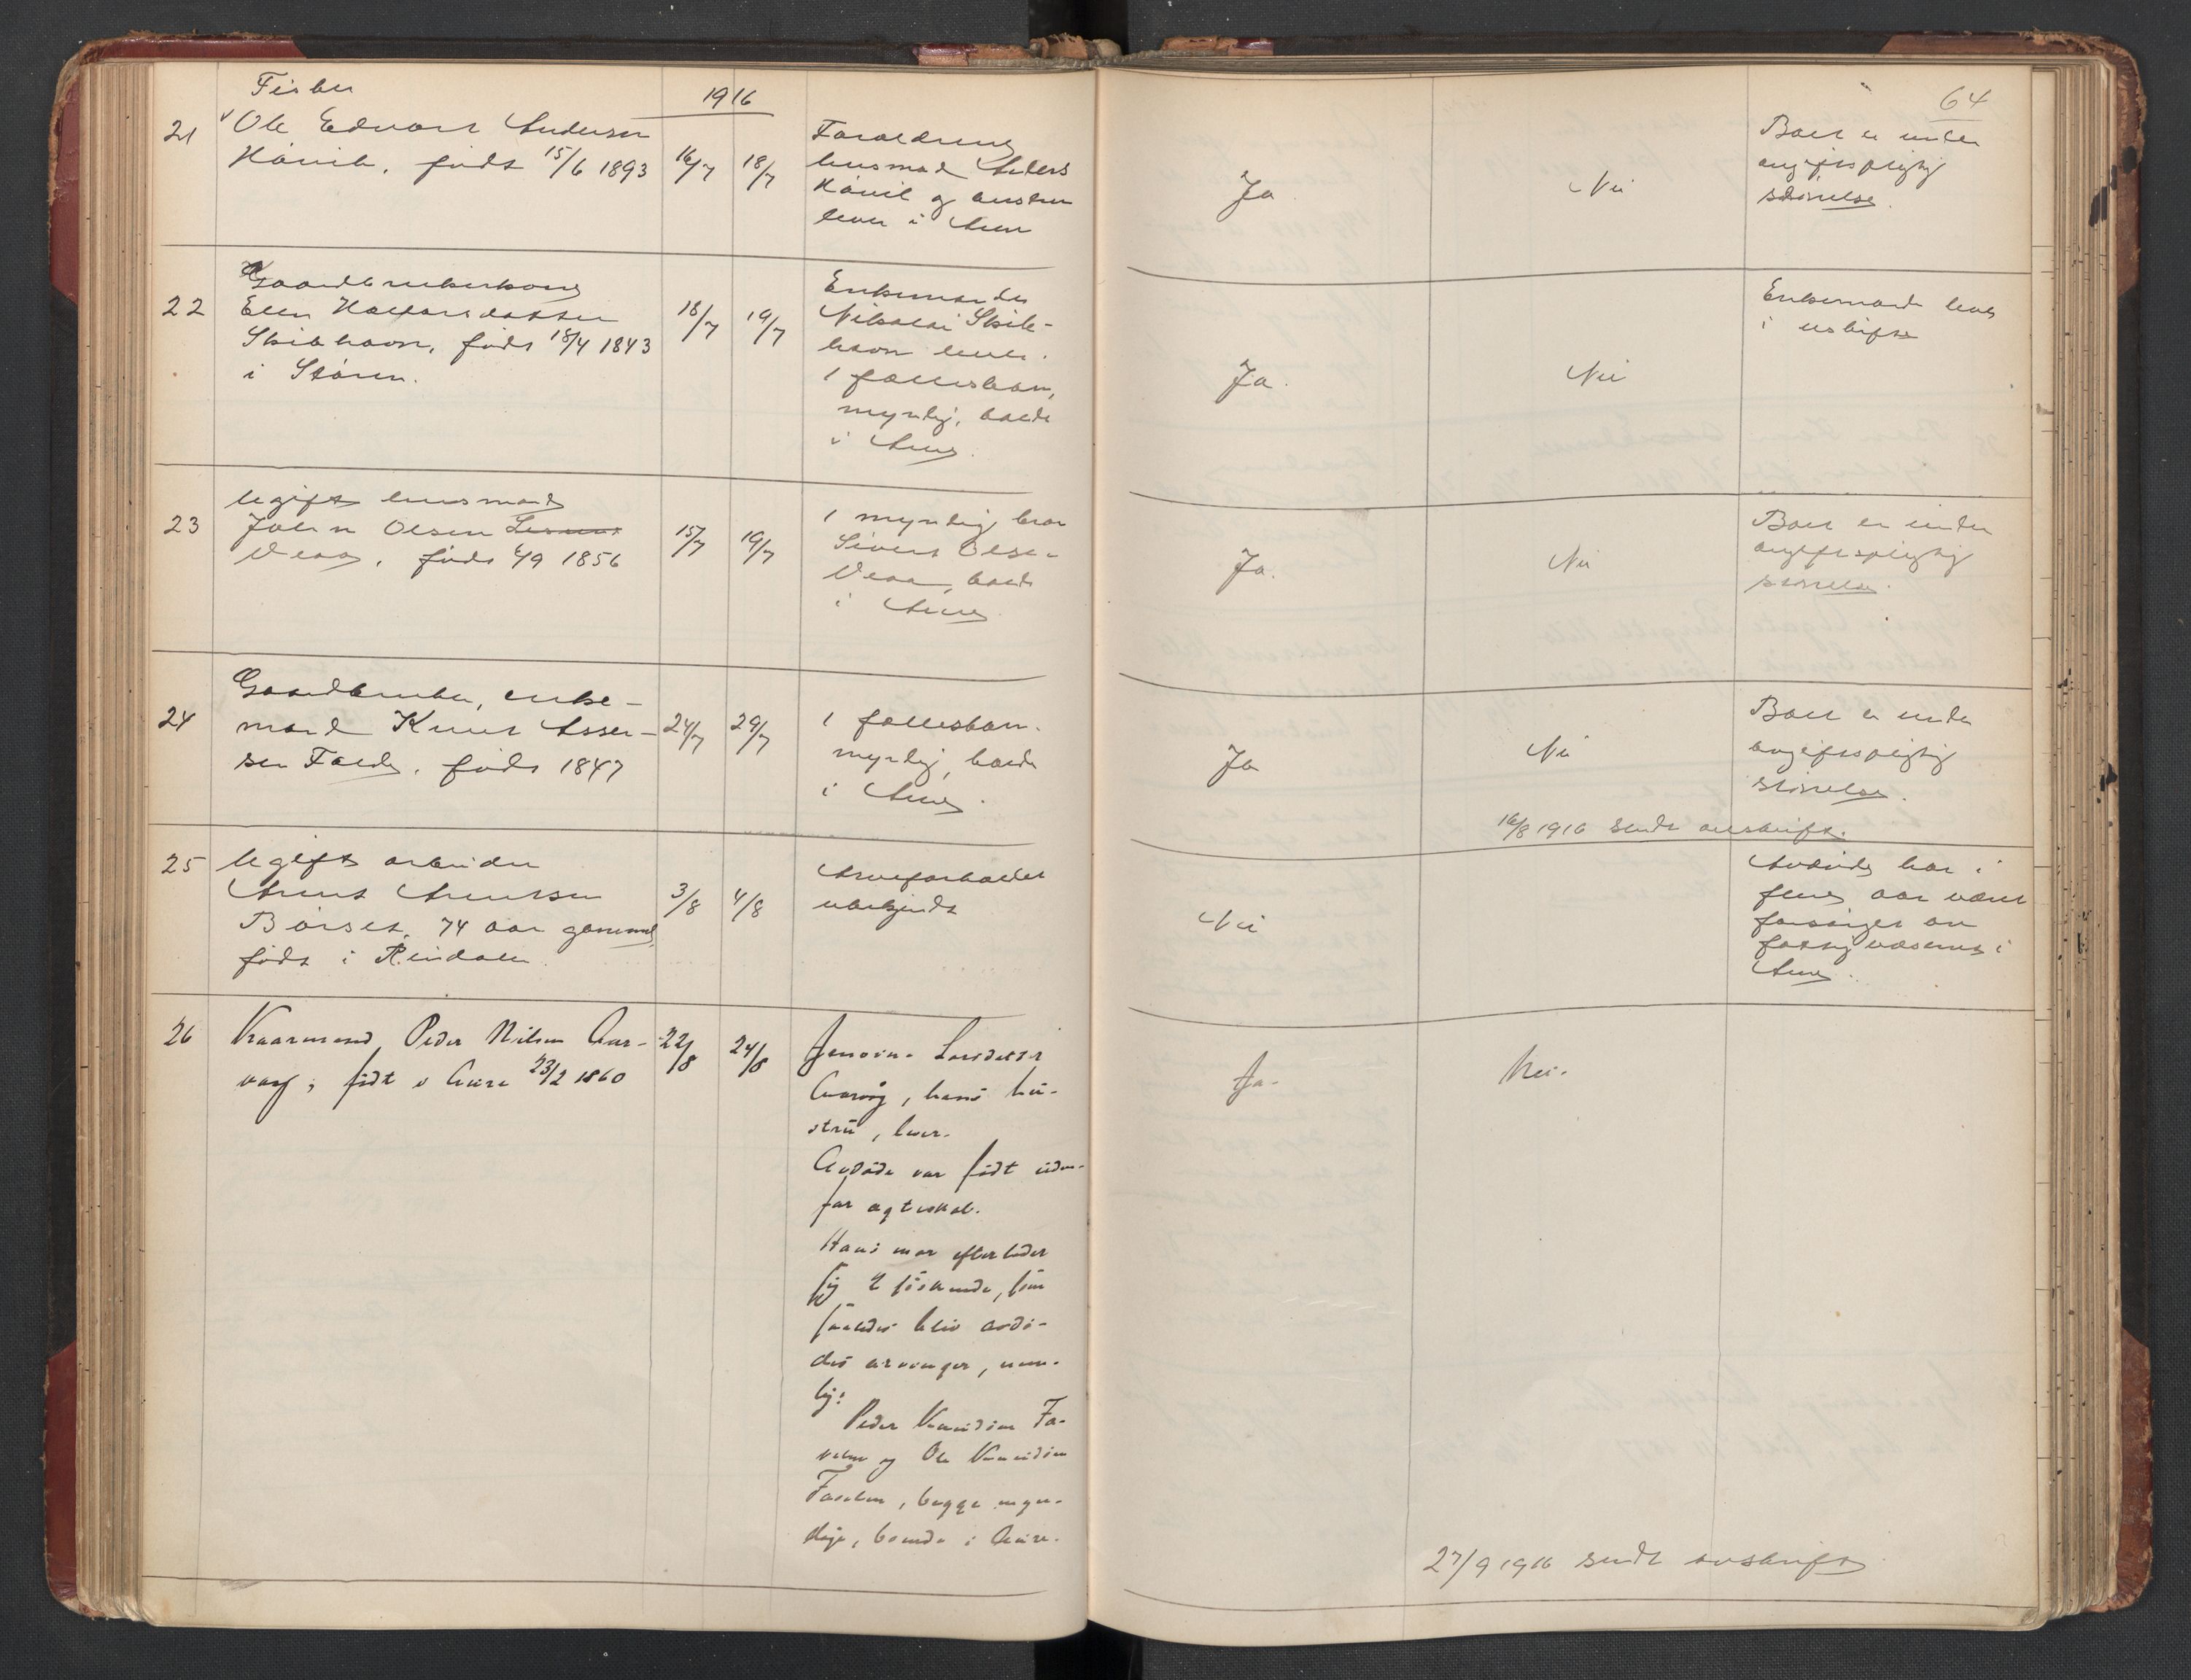 64
1916
21
Fisker
Ole Edvart Andersen
Hårvik, født 15/6 1893
16/7
18/7
Forældrene
husmand Anders
Hårvik og hustru
lever i Aure
Ja
Nei
Boet er under
avgiftspligtig
størrelse.
22
Gaardbrukerkone
Ellen Halvorsdatter
Skibhavn, født 18/4 1843
i Støren.
18/7
19/7
Enkemanden
Nikolai Skib-
havn lever.
1 fællesbarn,
myndig, boende
i Aure.
Ja.
Nei
Enkemanden lever
i uskifte
23
Ugift husmand
John Olsen
Veaa, født 4/9 1856
15/7
19/7
1 myndig bror
Sivert Olsen
Veaa, boende
i Aure
Ja.
Nei
Boet er under
avgiftspligtig
størrelse.
24
Gaardbruker, enke-
mand Knut Asser-
sen Folde, født 1847
24/7
29/7
1 fællesbarn.
myndig, boende
i Aure.
Ja
Nei
Boet er under
avgiftspligtig
størrelse.
16/8 1916 sendt avskrift.
25
Ugift arbeider
Arnt Arntsen
Børset, 74 aar gammel,
født i Rindalen
3/8
4/8
Arveforholdet
ubekjendt
Nei
Avdøde har i
flere aar været
forsørget av
fattigvæsenet i
Aure.
26
Kaarmand Peder Nilsen Aur-
vaag, født i Aure 23/2 1860
22/8
24/8
Larsdatter
Aurvåg, hans hu-
stru, lever.
Avdøde var født uden-
for ægteskab.
Hans mor efterlader
sig 2 søskende, som
saaledes blir avdø-
des arvinger, nem-
lig:
Peder Knudsen Fa-
 og Ole Knudsen
, begge myn-
dige, boende i Aure.
Ja.
Nei.
27/9 1916 sendt avskrift